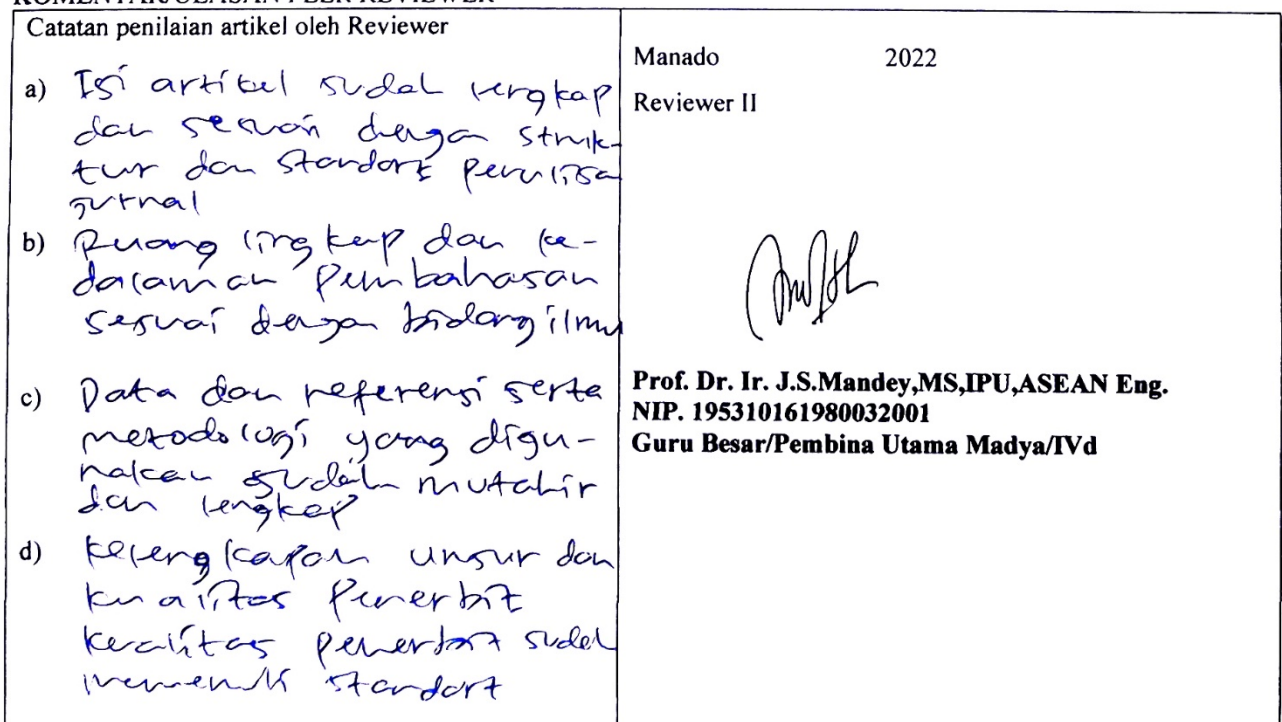 KOMENTAR/ULASAN PEER REVIEWER
Catatan penilaian artikel oleh Reviewer
a) Isi artikel sudah lengkap
dan sesuai dengan struk-
tur dan standart penulisa
jurnal
b) Ruang lingkup dan ke-
dalaman Pembahasan
sesuai dengan bidang ilmu
c) Data dan referensi serta
metodologi yang digu-
nakan sudah mutahir
dan lengkap
d) Kelengkapan unsur dan
kualitas Penerbit
kualitas penerbit sudah
memenuhi standart
Manado 2022
Reviewer II
Prof. Dr. Ir. J.S.Mandey,MS,IPU,ASEAN Eng.
NIP. 195310161980032001
Guru Besar/Pembina Utama Madya/IVd